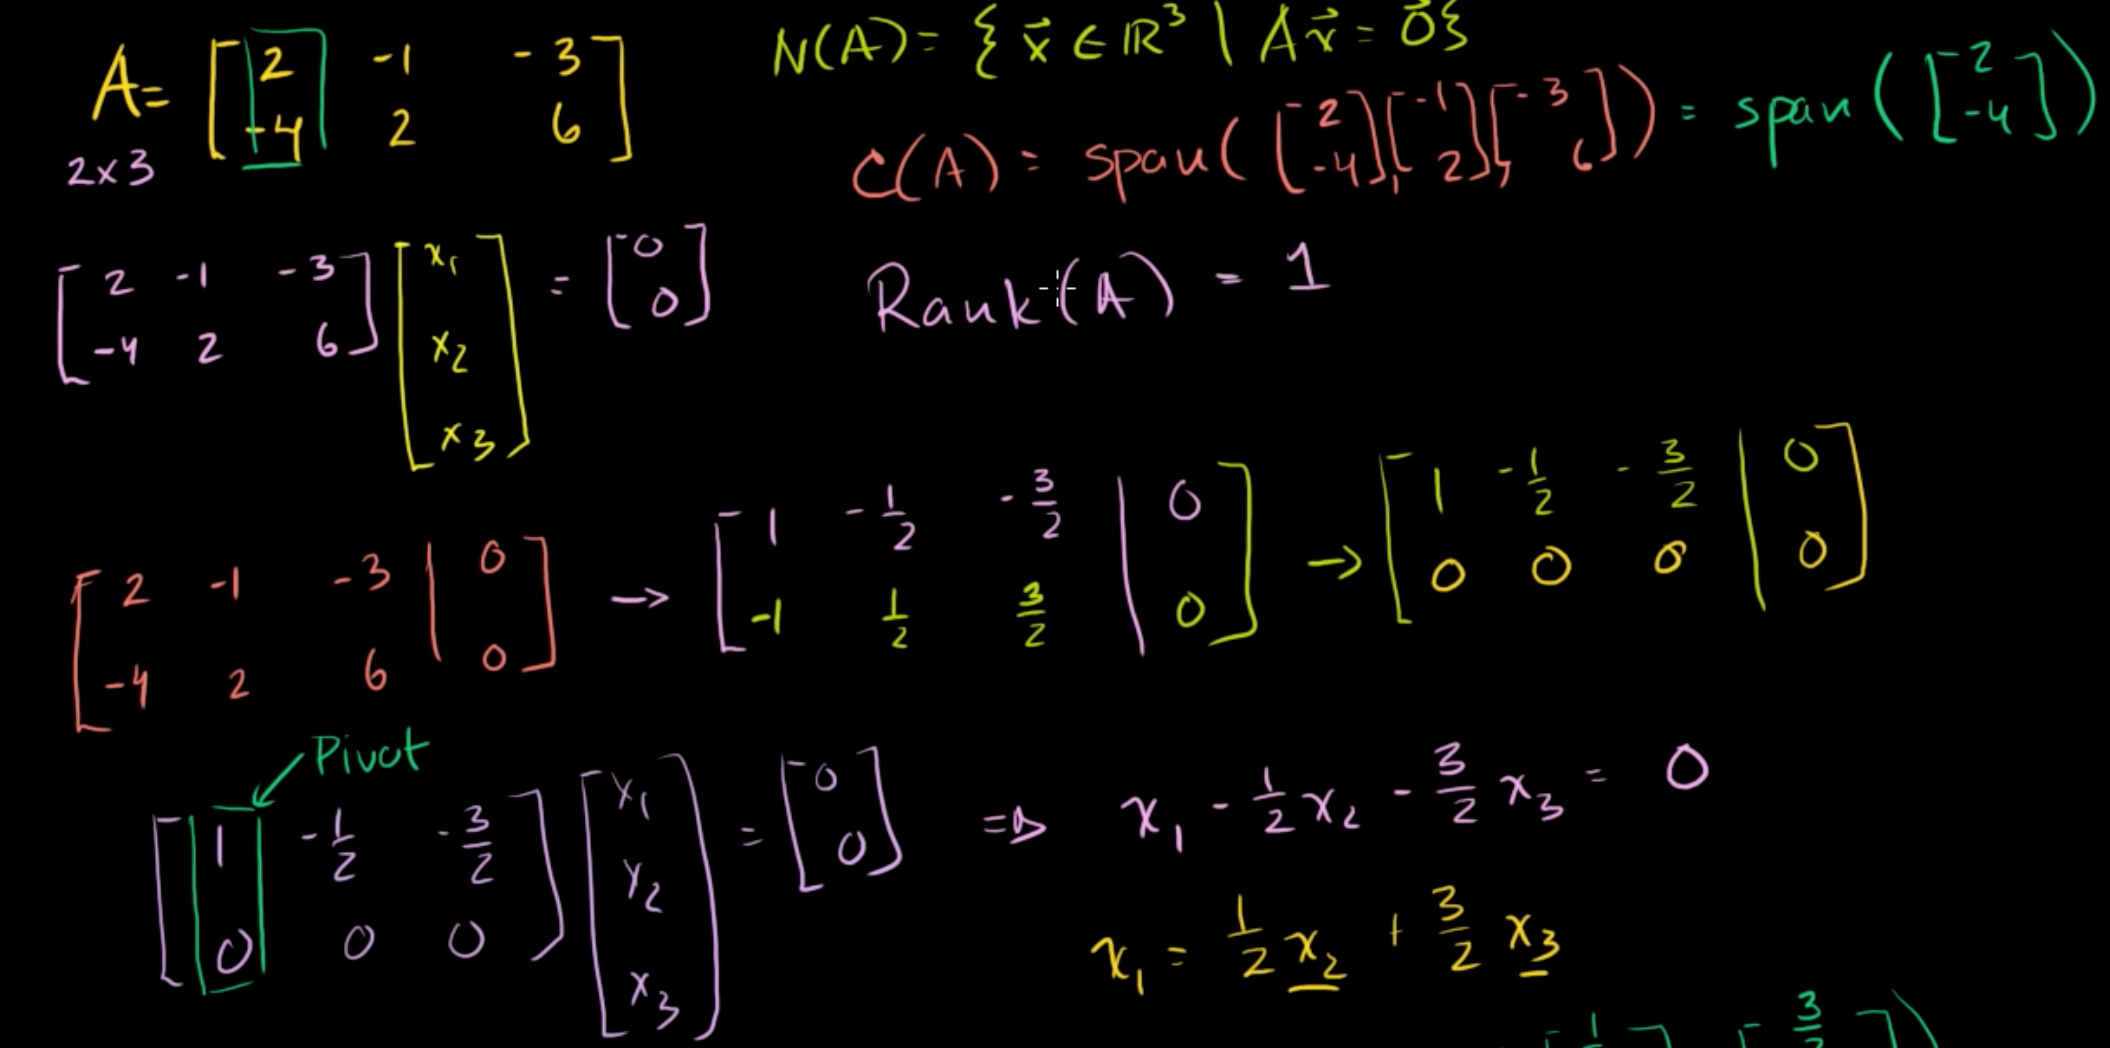 A = [2 -1 -3; -4 2 6] N(A) = { x⃗ ∈ ℝ³ | Ax⃗ = 0⃗ }
2x3 C(A) = span([2; -4], [-1; 2], [-3; 6]) = span([2; -4])
[2 -1 -3; -4 2 6] [x₁; x₂; x₃] = [0; 0] Rank(A) = 1
[2 -1 -3 | 0; -4 2 6 | 0] → [1 -1/2 -3/2 | 0; -1 1/2 3/2 | 0] → [1 -1/2 -3/2 | 0; 0 0 0 | 0]
Pivot
[1 -1/2 -3/2; 0 0 0] [x₁; x₂; x₃] = [0; 0] ⇒ x₁ - 1/2 x₂ - 3/2 x₃ = 0
x₁ = 1/2 x₂ + 3/2 x₃